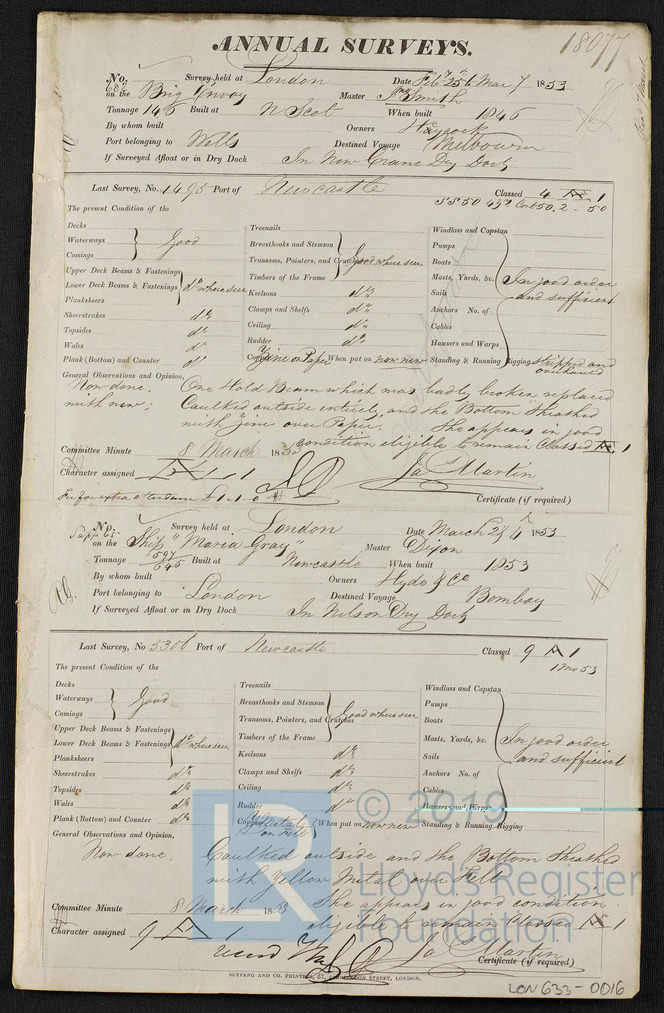 ANNUAL SURVEYS.
18077
No. 682 Survey held at London Date Feb 25 & Mar 7 1853
on the Brig Envoy Master Smith
Tonnage 145 Built at N Scot When built 1846
By whom built Owners Haycock
Port belonging to Wells Destined Voyage Melbourn
If Surveyed Afloat or in Dry Dock In New Crane Dry Dock
Last Survey, No. 1695 Port of Newcastle Classed 4 A 1
SS50 50
The present Condition of the
Decks
Waterways } Good
Comings
Upper Deck Beams & Fastenings
Lower Deck Beams & Fastenings } do where seen
Planksheers
Sheerstrakes do
Topsides do
Wales do
Plank (Bottom) and Counter do
Treenails
Breasthooks and Stemson
Transoms, Pointers, and Crutches } Good where seen
Timbers of the Frame
Keelsons do
Clamps and Shelfs do
Ceiling do
Rudder do
Copper Zinc on Paper When put on now new
Windlass and Capstan
Pumps
Boats
Masts, Yards, &c. In good order
Sails and sufficient
Anchors No. of
Cables
Hawsers and Warps
Standing & Running Rigging stripped and
overhauled
General Observations and Opinion,
Now done, One Hold Beam which was badly broken replaced
with new; Caulked outside entirely, and the Bottom Sheathed
with Zinc over Paper. She appears in good
condition eligible to remain Classed A 1
Committee Minute 8 March 1853
Character assigned A 1 Jas Martin
Fee for extra attendance £1-1-0
Certificate (if required)
No. Survey held at London Date March 2 & 4 1853
on the Ship "Maria Gray" Master Dixon
Tonnage 597/645 Built at Newcastle When built 1853
By whom built Owners Hyde & Co
Port belonging to London Destined Voyage Bombay
If Surveyed Afloat or in Dry Dock In Nelson Dry Dock
Last Survey, No 5306 Port of Newcastle Classed 9 A 1
1 mo 53
The present Condition of the
Decks
Waterways } Good
Comings
Upper Deck Beams & Fastenings
Lower Deck Beams & Fastenings } do where seen
Planksheers
Sheerstrakes do
Topsides do
Wales do
Plank (Bottom) and Counter do
Treenails
Breasthooks and Stemson
Transoms, Pointers, and Crutches } Good where seen
Timbers of the Frame
Keelsons do
Clamps and Shelfs do
Ceiling do
Rudder do
Copper Y Metal on Felt } When put on now new
Windlass and Capstan
Pumps
Boats
Masts, Yards, &c. In good order
Sails and sufficient
Anchors No. of
Cables
Hawsers and Warps
Standing & Running Rigging
General Observations and Opinion,
Now done. Caulked outside and the Bottom Sheathed
with Yellow Metal over Felt
She appears in good condition
Committee Minute 8 March 1853
eligible to remain Classed A 1
Character assigned 9 A 1
Jas Martin
Certificate (if required)
SEYFANG AND CO. PRINTERS, STREET, LONDON.
LON 633-0016
© 2019
LR
Lloyd's Register
Foundation